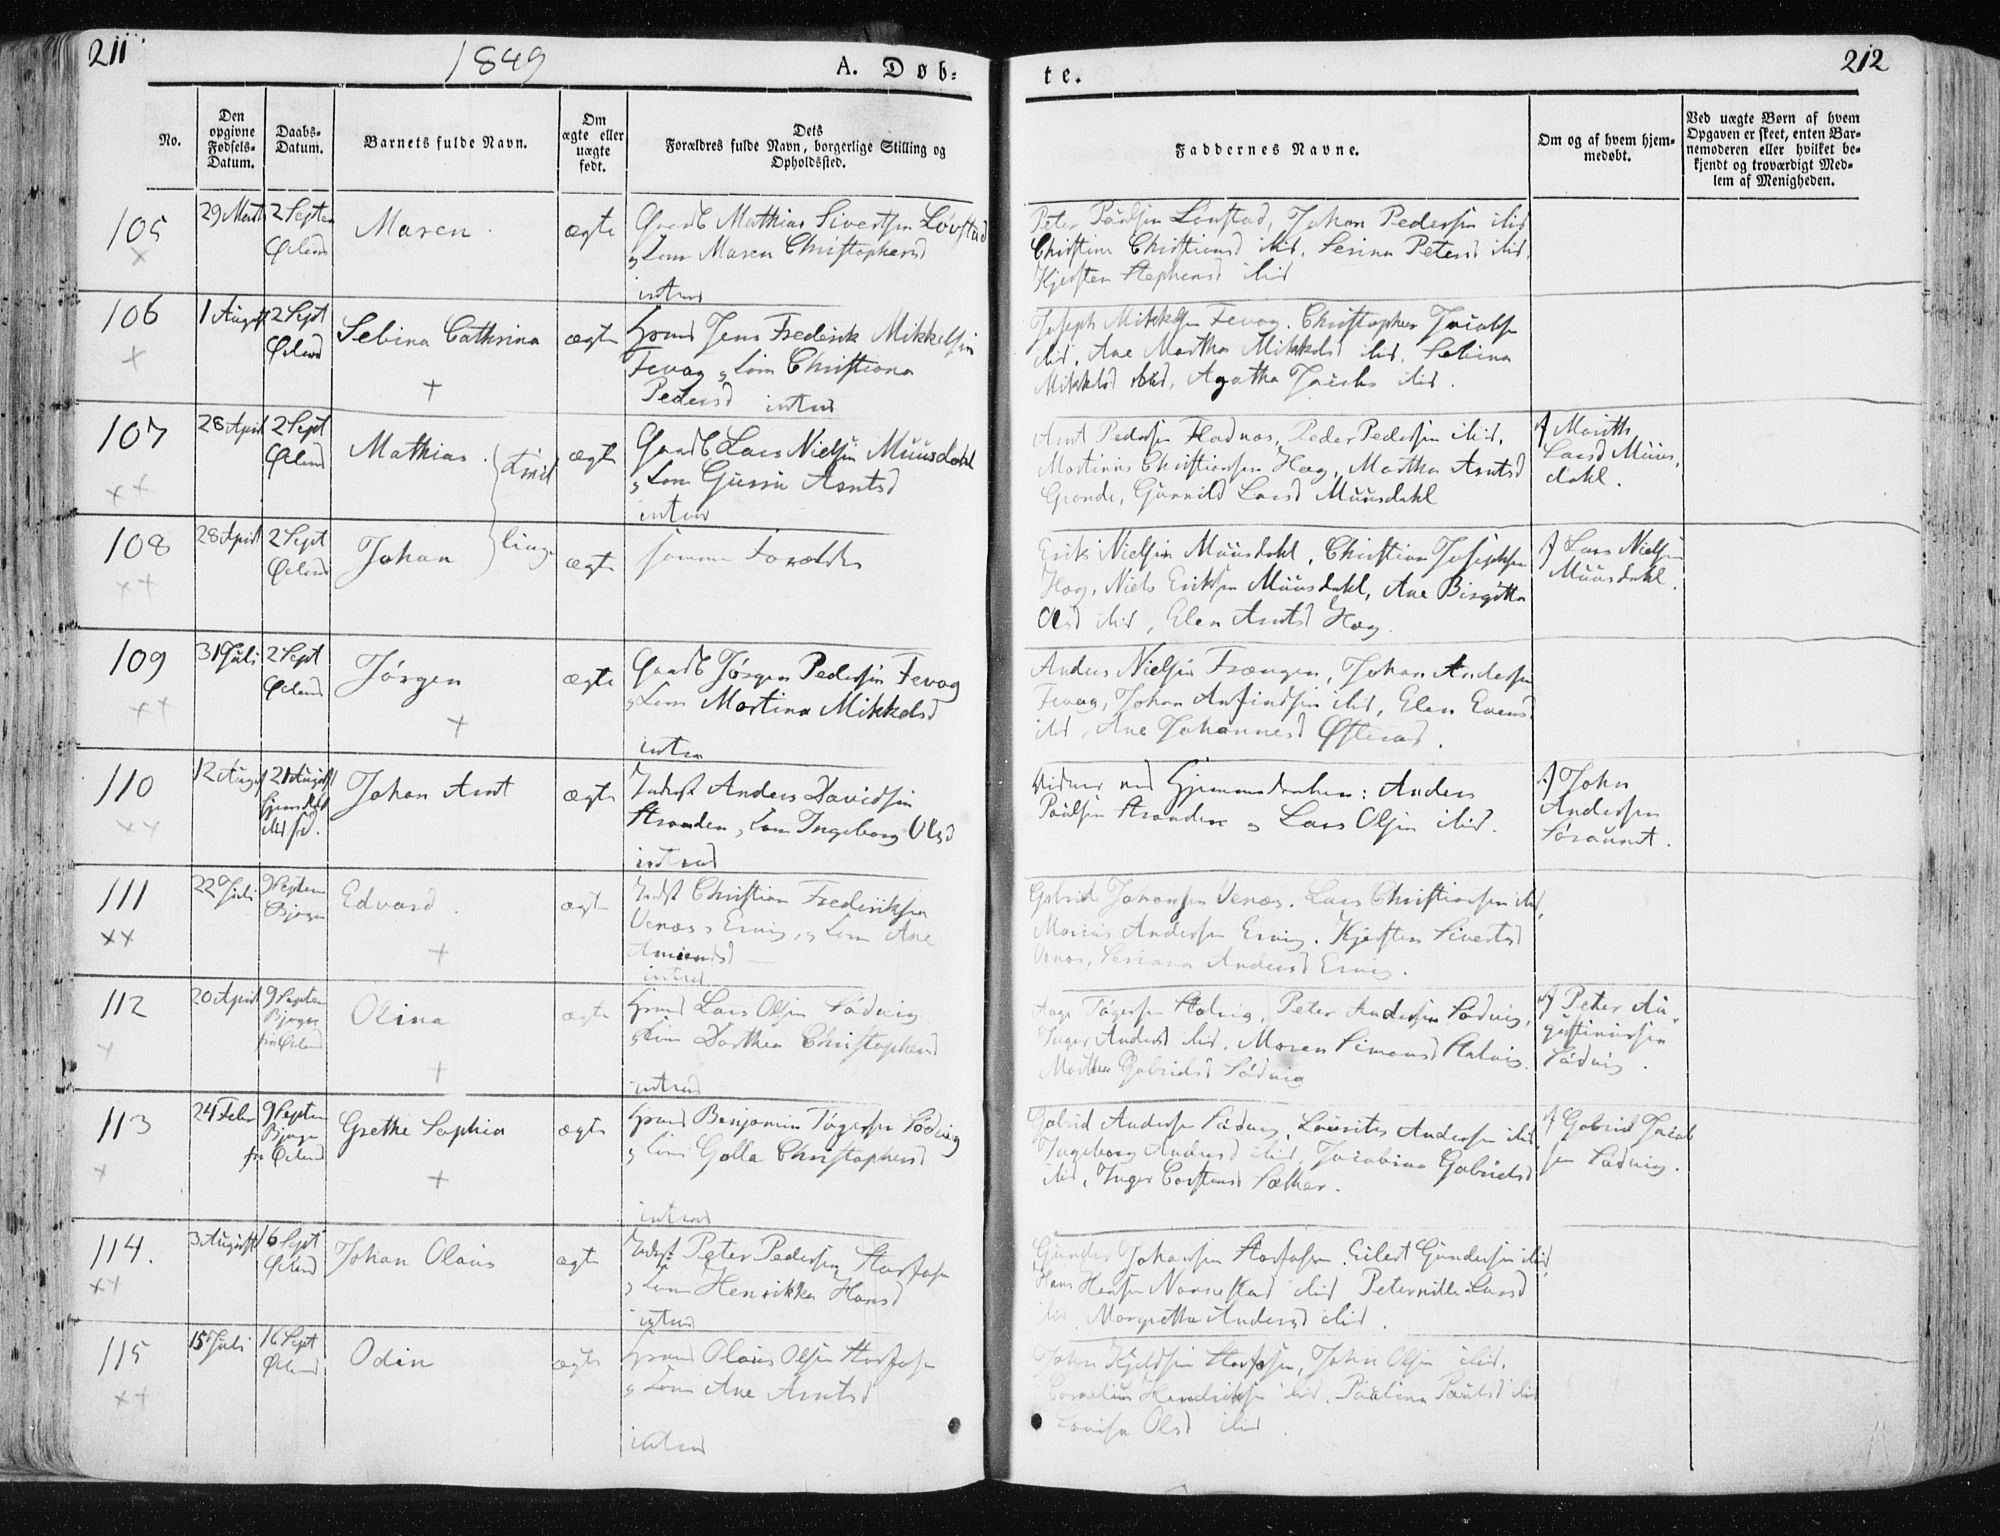 211
1849
A. Døb-
te.
212
No.
Den opgivne Fødsels-Datum.
Daabs-Datum.
Barnets fulde Navn.
Om ægte eller uægte født.
Dets Forældres fulde Navn, borgerlige Stilling og Opholdssted.
Faddernes Navne.
Om og af hvem hjem-medøbt.
Ved uægte Børn af hvem Opgaven er skeet, enten Bar-nemoderen eller hvilket be-kjendt og troværdigt Med-lem af Menigheden.
105
2 Septen
Ørland
Maren
ægte
Gaardb Mathias Sivertsen Løvstad
og Kone Maren Christophersd
Peter Paulsen Lønstad, Johan Pedersen ibid
Christine Christiansd ibid, Serina Petersd ibid,
Kjersten Stephensd ibid
106
1 August
2 Sept
Ørland
Sebina Cathrina
ægte
Huusmd Jens Frederik Mikkelsen
Fevag og Kone Christiana
Pedersd
Joseph Mikkelsen Fevag, Christopher Jacobsen
ibid, Ane Martha Mikkelsd ibid, Sebina
Mikkelsd ibid, Agatha Jacobs ibid.
107
28 April
2 Sept
Ørland
Mathias
ægte
Gaardb Lars Nielsen Muusdahl
og Kone Guru Arntsd
Arnt Pedersen Fladnas, Peder Pedersen ibid,
Martinus Christiansen Hog, Martha Arntsd
Grande, Gunnild Larsd Muusdahl
Larsd Muus-
dahl.
108
28 April
2 Sept
Ørland
Johan
ling
ægte
samme Forældre
Erik Nielsen Muusdahl, Christian Josephsen
Hog, Niels Eriksen Muusdahl, Ane Birgitta
Olsd ibid, Elen Arntsd Hog.
Lars Nielsen
Muusdahl.
109
31 Juli
2 Sept
Ørland
Jørgen
ægte
Gaardb Jørgen Pedersen Fevag
og Kone Martina Mikkelsd
Anders Nielsen Frængen, Johan Andersen
Fevag, Johan Arfindsen ibid, Elen Evensd
ibid, Ane Johannesd Østeraad.
110
12 August
21 August
Johan Arnt
ægte
Inderst Anders Davidsen
Stranden, Kone Ingeborg Olsd
Vidner ved Hjemmedaaben: Anders
Paulsen Stranden og Lars Olsen ibid.
John
Andersen
111
22 Juli
9 Septen
Bjugn
Edvard
ægte
Inderst Christian Frederiksen
og Kone Ane
Gabriel Johansen Venæs, Lars Christiansen ibid,
Marius Andersen, Kjersten Sivertsd
112
20 April
9 Septen
Bjugn
for Ørland
Olina
ægte
Huusmd Lars Olsen Sædvig
og Kone Dorthea Christophersd
Peter Andersen Sædvig,
Inger Andersd ibid, Maren Simonsd
Martha Gabrielsd Sædvig
Peter Au-
gustinusen
Sædvig.
113
24 Febr
9 Septen
Bjugn
for Ørland
Grethe Sophia
ægte
Huusmd Benjamin Tøgersen Sødvig
og Kone Golla Christophersd
Gabriel Andersen Sædvig, Laurits Andersen ibid,
Ingeborg Andersd ibid, Jacobina Gabrielsd
ibid, Inger Carstensd Sæther.
Gabriel Jacob-
sen Sædvig.
114.
3 August
16 Sept
Ørland
Johan Olaus
ægte
Inderst Peter Pedersen Storfosen
og Kone Henrikka Hansd
Gunder Johansen Storfosen, Eilert Gundersen ibid,
Hans Hansen ibid, Peternille Larsd
ibid, Margrethe Andersd ibid.
115
15 Juli
16 Sept
Ørland
Odin
ægte
Huusmd Olaus Olsen Storfosen
og Kone Ane Arntsd
John Kjeldsen Storfosen, John Olsen ibid,
Cornelius Hendriksen ibid, Paulina Paulsd ibid
Lovise Olsd ibid.